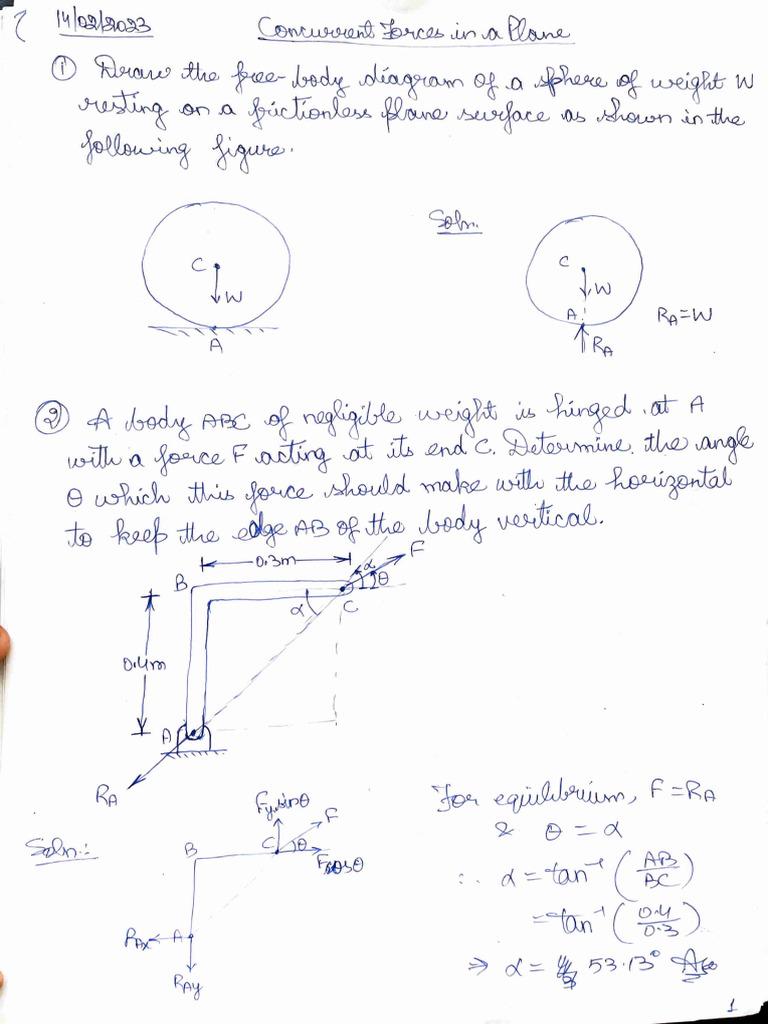 14/02/2023
Concurrent Forces in a Plane
① Draw the free-body diagram of a sphere of weight W
resting on a frictionless plane surface as shown in the
following figure.
C
W
A
Soln.
C
W
A
RA
RA=W
② A body ABC of negligible weight is hinged at A
with a force F acting at its end C. Determine the angle
θ which this force should make with the horizontal
to keep the edge AB of the body vertical.
0.3m
F
B
α
θ
α
C
0.4m
A
RA
Soln:
F
C
θ
B
A
RAx
RAy
For equilibrium, F=RA
& θ = α
∴ α = tan⁻¹ (AB/BC)
= tan⁻¹ (0.4/0.3)
⇒ α = 53.13° Ans
1